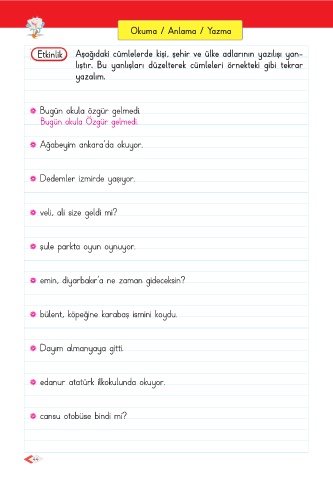 Okuma / Anlama / Yazma
Etkinlik
Aşağıdaki cümlelerde kişi, şehir ve ülke adlarının yazılışı yan-
lıştır. Bu yanlışları düzelterek cümleleri örnekteki gibi tekrar
yazalım.
Bugün okula özgür gelmedi.
Bugün okula Özgür gelmedi.
Ağabeyim ankara'da okuyor.
Dedemler izmirde yaşıyor.
veli, ali size geldi mi?
şule parkta oyun oynuyor.
emin, diyarbakır'a ne zaman gideceksin?
bülent, köpeğine karabaş ismini koydu.
Dayım almanyaya gitti.
edanur atatürk ilkokulunda okuyor.
cansu otobüse bindi mi?